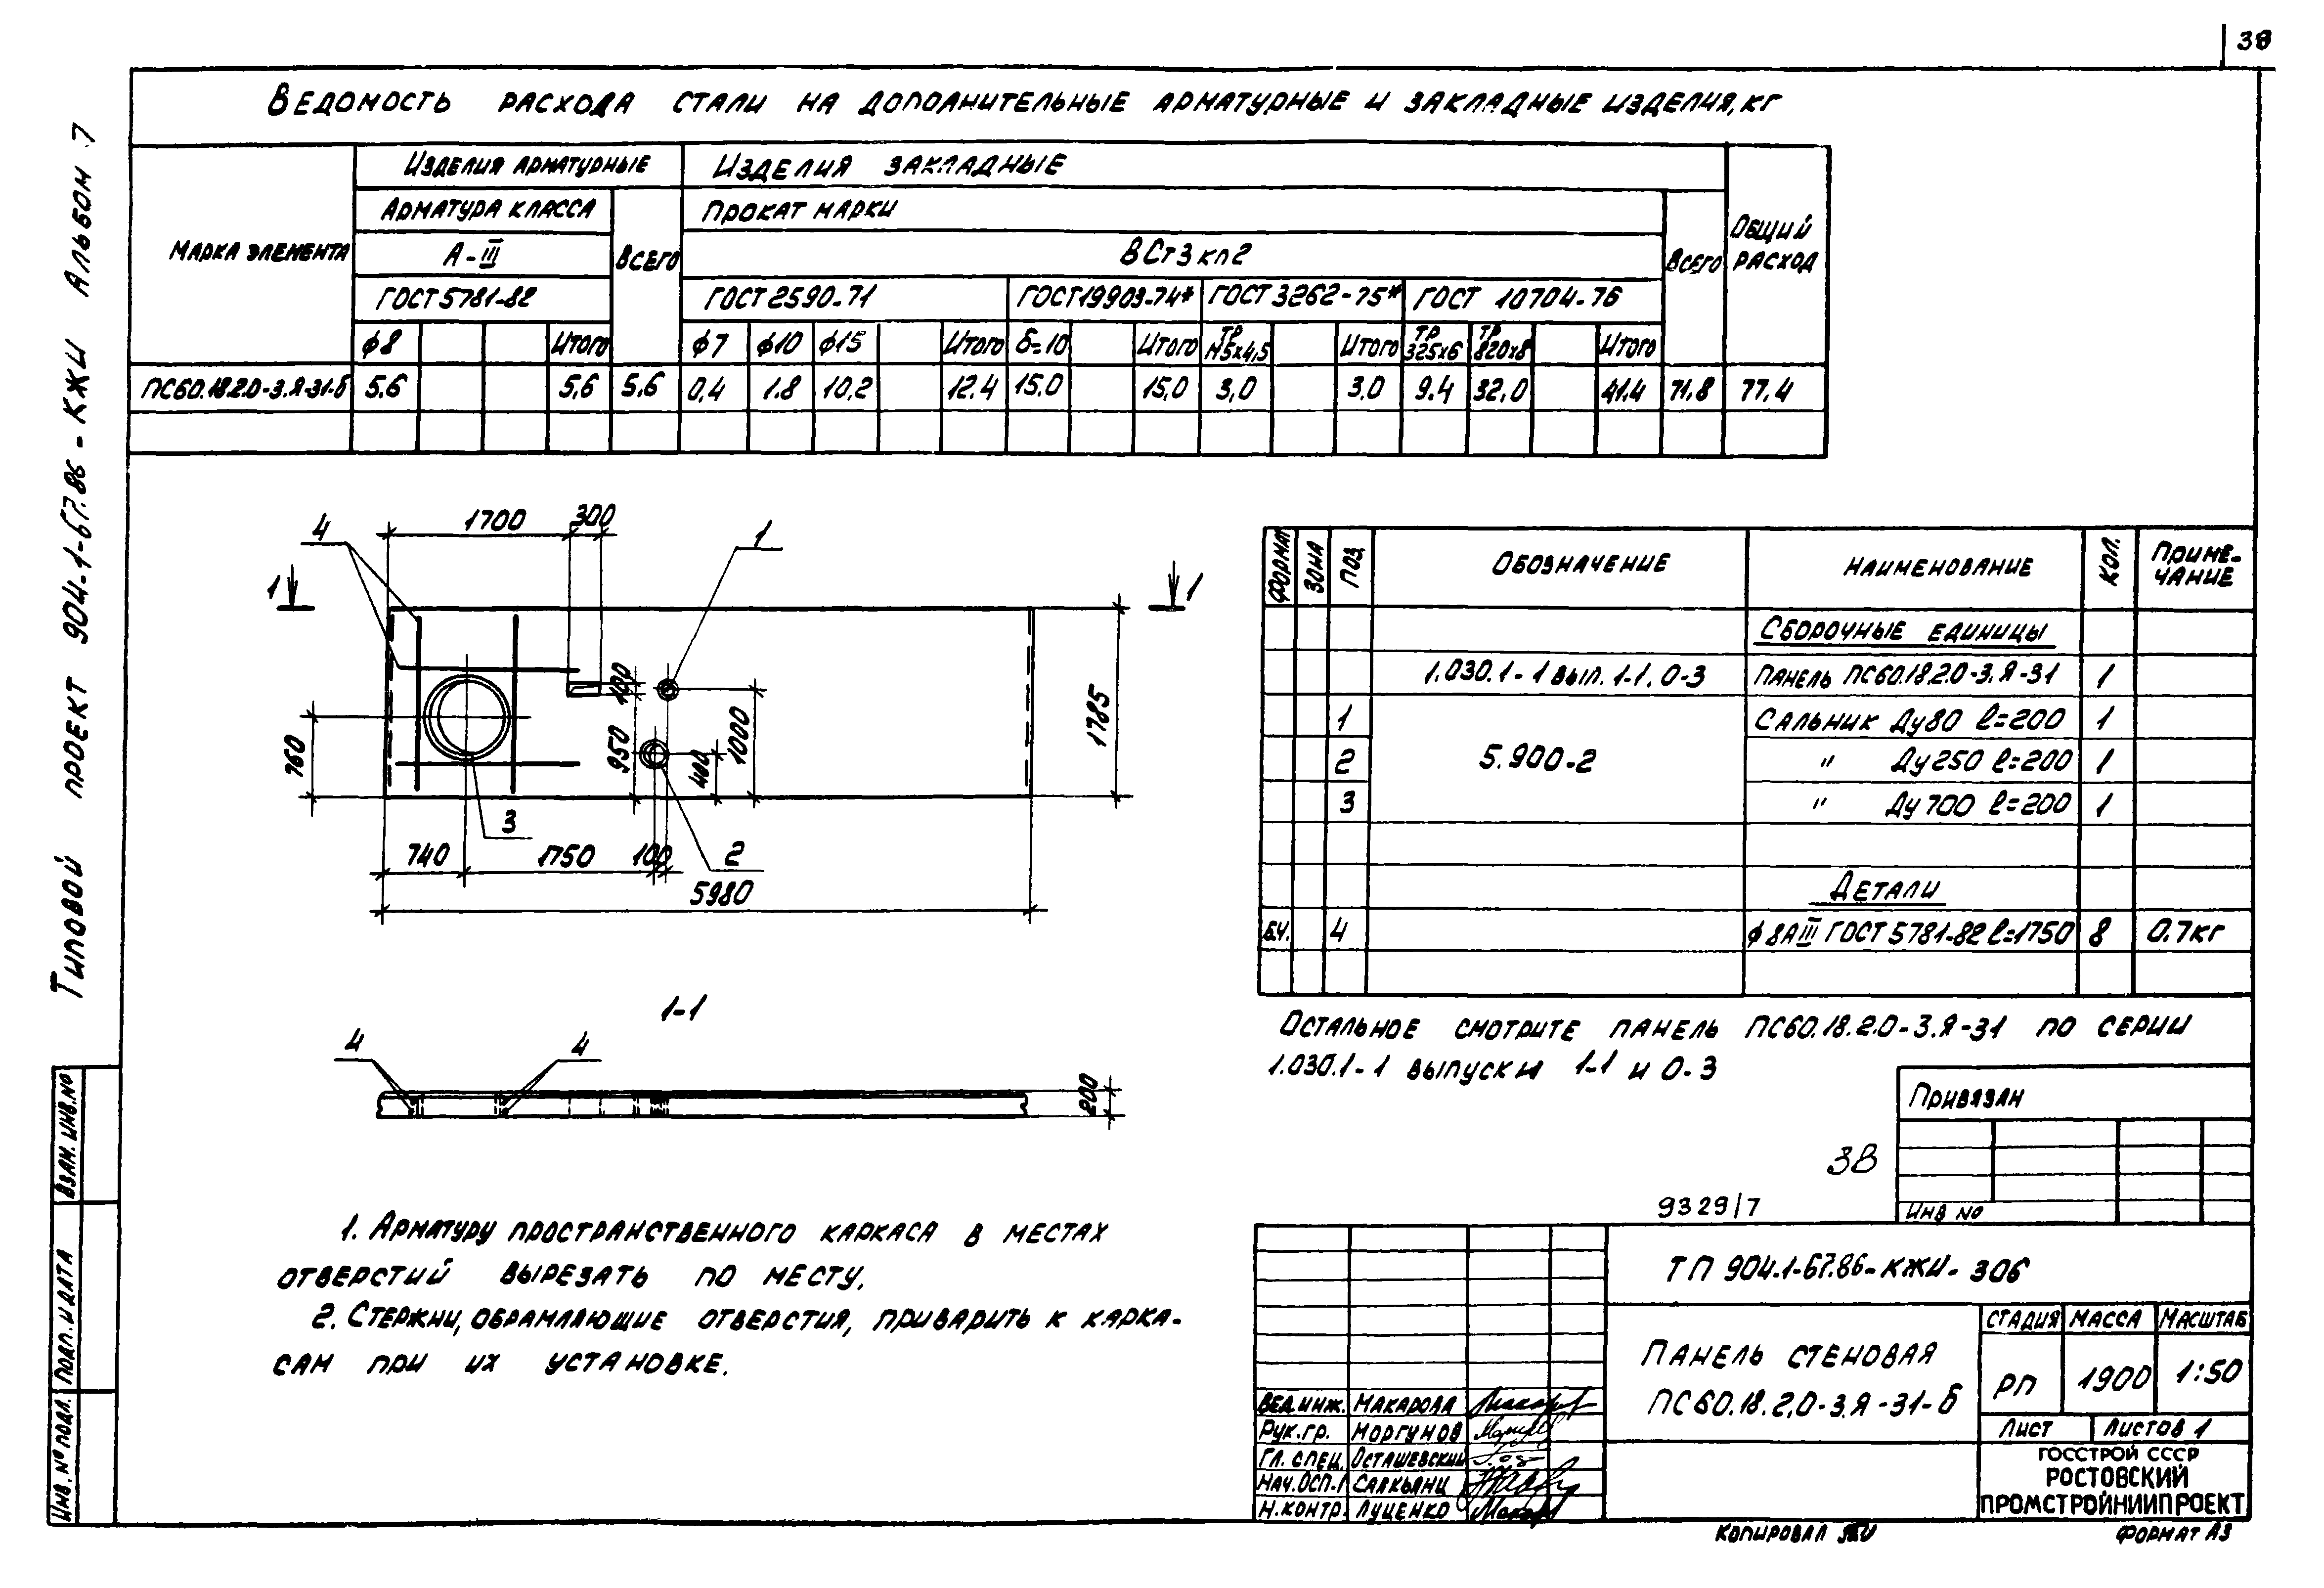 38
Ведомость расхода стали на дополнительные арматурные и закладные изделия, кг
Марка элемента
Изделия арматурные
Изделия закладные
Общий расход
Арматура класса
Всего
Прокат марки
Всего
А-III
ВСт3кп2
ГОСТ 5781-82
ГОСТ 2590-71
ГОСТ 19903-74*
ГОСТ 3262-75*
ГОСТ 10704-76
ϕ8 Итого ϕ7 ϕ10 ϕ15 Итого δ=10 Итого Тр Итого Тр 325х6 Тр 820х8 Итого
ПС60.18.2.0-3.Я-31-б 5,6 5,6 5,6 0,4 1.8 10,2 12.4 15.0 15,0 3,0 3,0 9.4 32,0 41.4 71,8 77.4
4
1700
300
1
1
1
100
760
950
400
1000
1785
3
2
740
1750
100
5980
1-1
4
4
200
Формат
Зона
Поз.
Обозначение
Наименование
Кол.
Приме-
чание
Сборочные единицы
1.030.1-1 вып. 1-1, 0-3 Панель ПС60.18.2.0-3.Я-31 1
1 Сальник Ду80 ℓ=200 1
5.900-2
2 " Ду250 ℓ=200 1
3 " Ду700 ℓ=200 1
Детали
Б.Ч. 4 ϕ8АIII ГОСТ 5781-82 ℓ=1750 8 0.7кг
Остальное смотрите панель ПС60.18.2.0-3.Я-31 по серии
1.030.1-1 выпуски 1-1 и 0-3
Привязан
Инв №
38
9329/7
1. Арматуру пространственного каркаса в местах
отверстий вырезать по месту.
2. Стержни, обрамляющие отверстия, приварить к карка-
сам при их установке.
ТП 904.1-67.86-КЖИ-306
Панель стеновая
ПС60.18.2,0-3.Я-31-б
Стадия Масса Масштаб
РП 1900 1:50
Лист Листов 1
ГОССТРОЙ СССР
РОСТОВСКИЙ
ПРОМСТРОЙНИИПРОЕКТ
Вед.инж. Макарова
Рук.гр. Моргунов
Гл. спец. Осташевский
Нач.ОСП-1 Салкьянц
Н.контр. Луценко
Копировал
Формат А3
Типовой проект 904-1-67.86-КЖИ Альбом 7
Взам. инв.№
Подп. и дата
Инв. № подл.